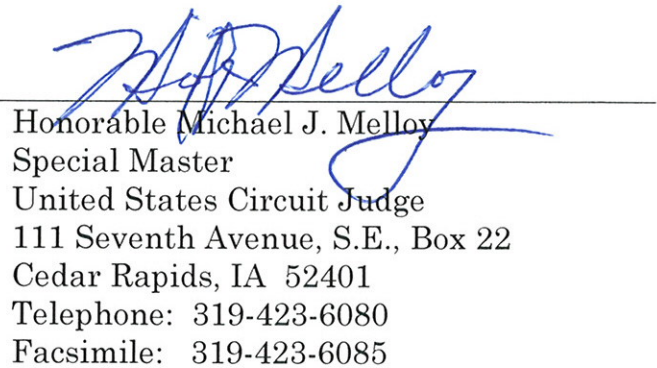 Honorable Michael J. Melloy
Special Master
United States Circuit Judge
111 Seventh Avenue, S.E., Box 22
Cedar Rapids, IA 52401
Telephone: 319-423-6080
Facsimile: 319-423-6085